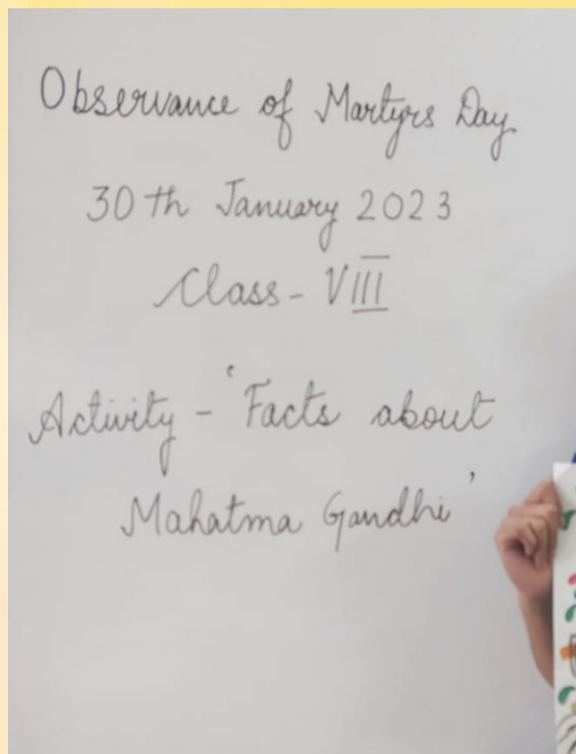 Observance of Martyrs Day
30th January 2023
Class - VIII
Activity - 'Facts about
Mahatma Gandhi'